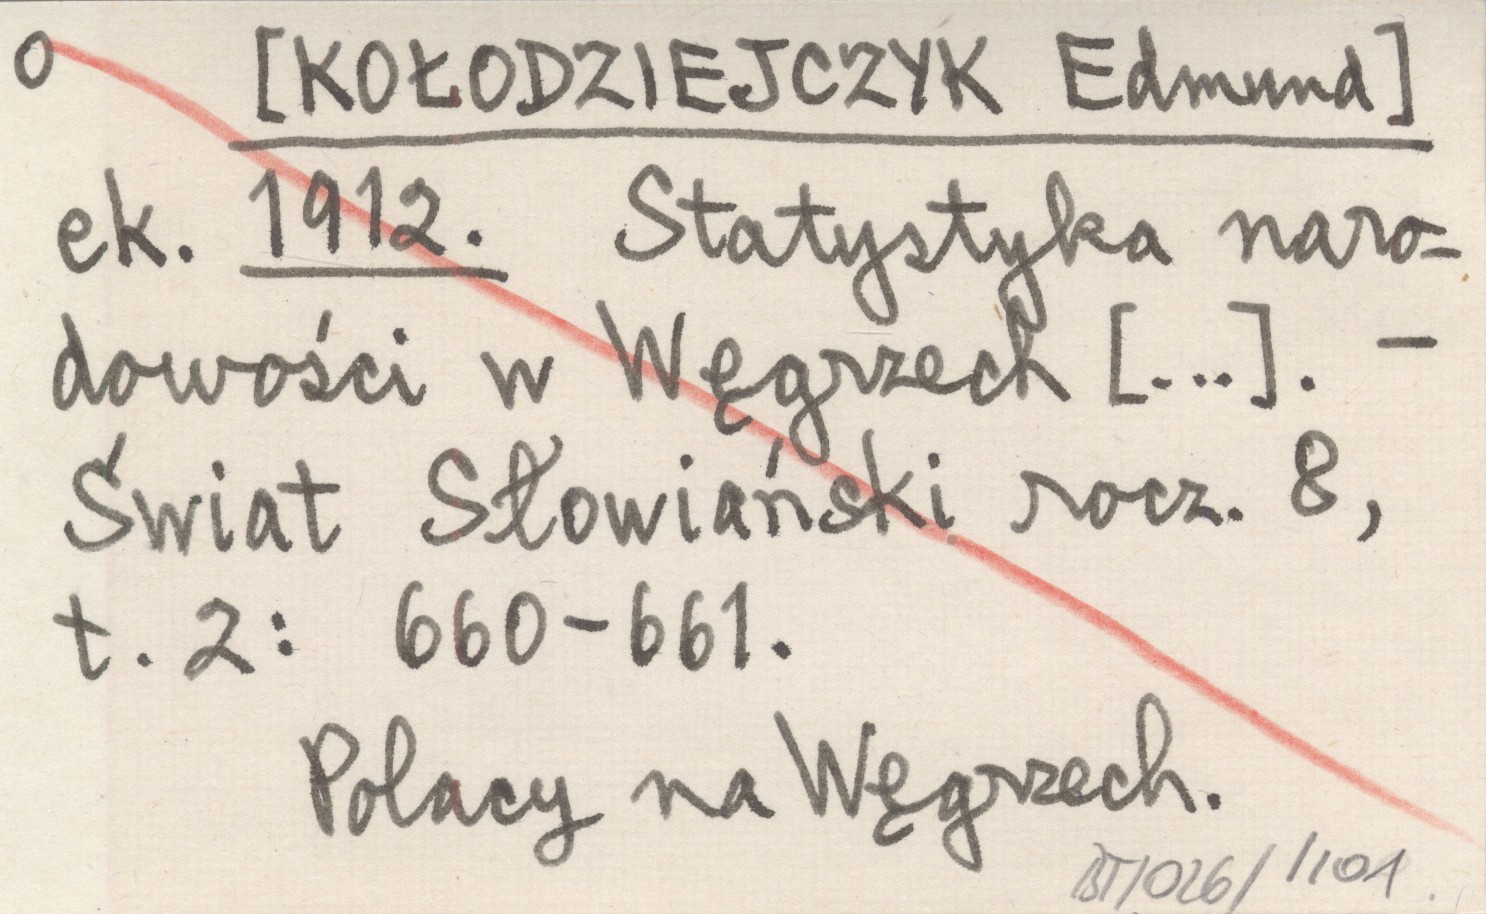 o [KOŁODZIEJCZYK Edmund]
ek. 1912. Statystyka naro=
dowości w Węgrzech [...]. –
Świat Słowiański rocz. 8,
t. 2: 660-661.
Polacy na Węgrzech.
BT/026/1101.